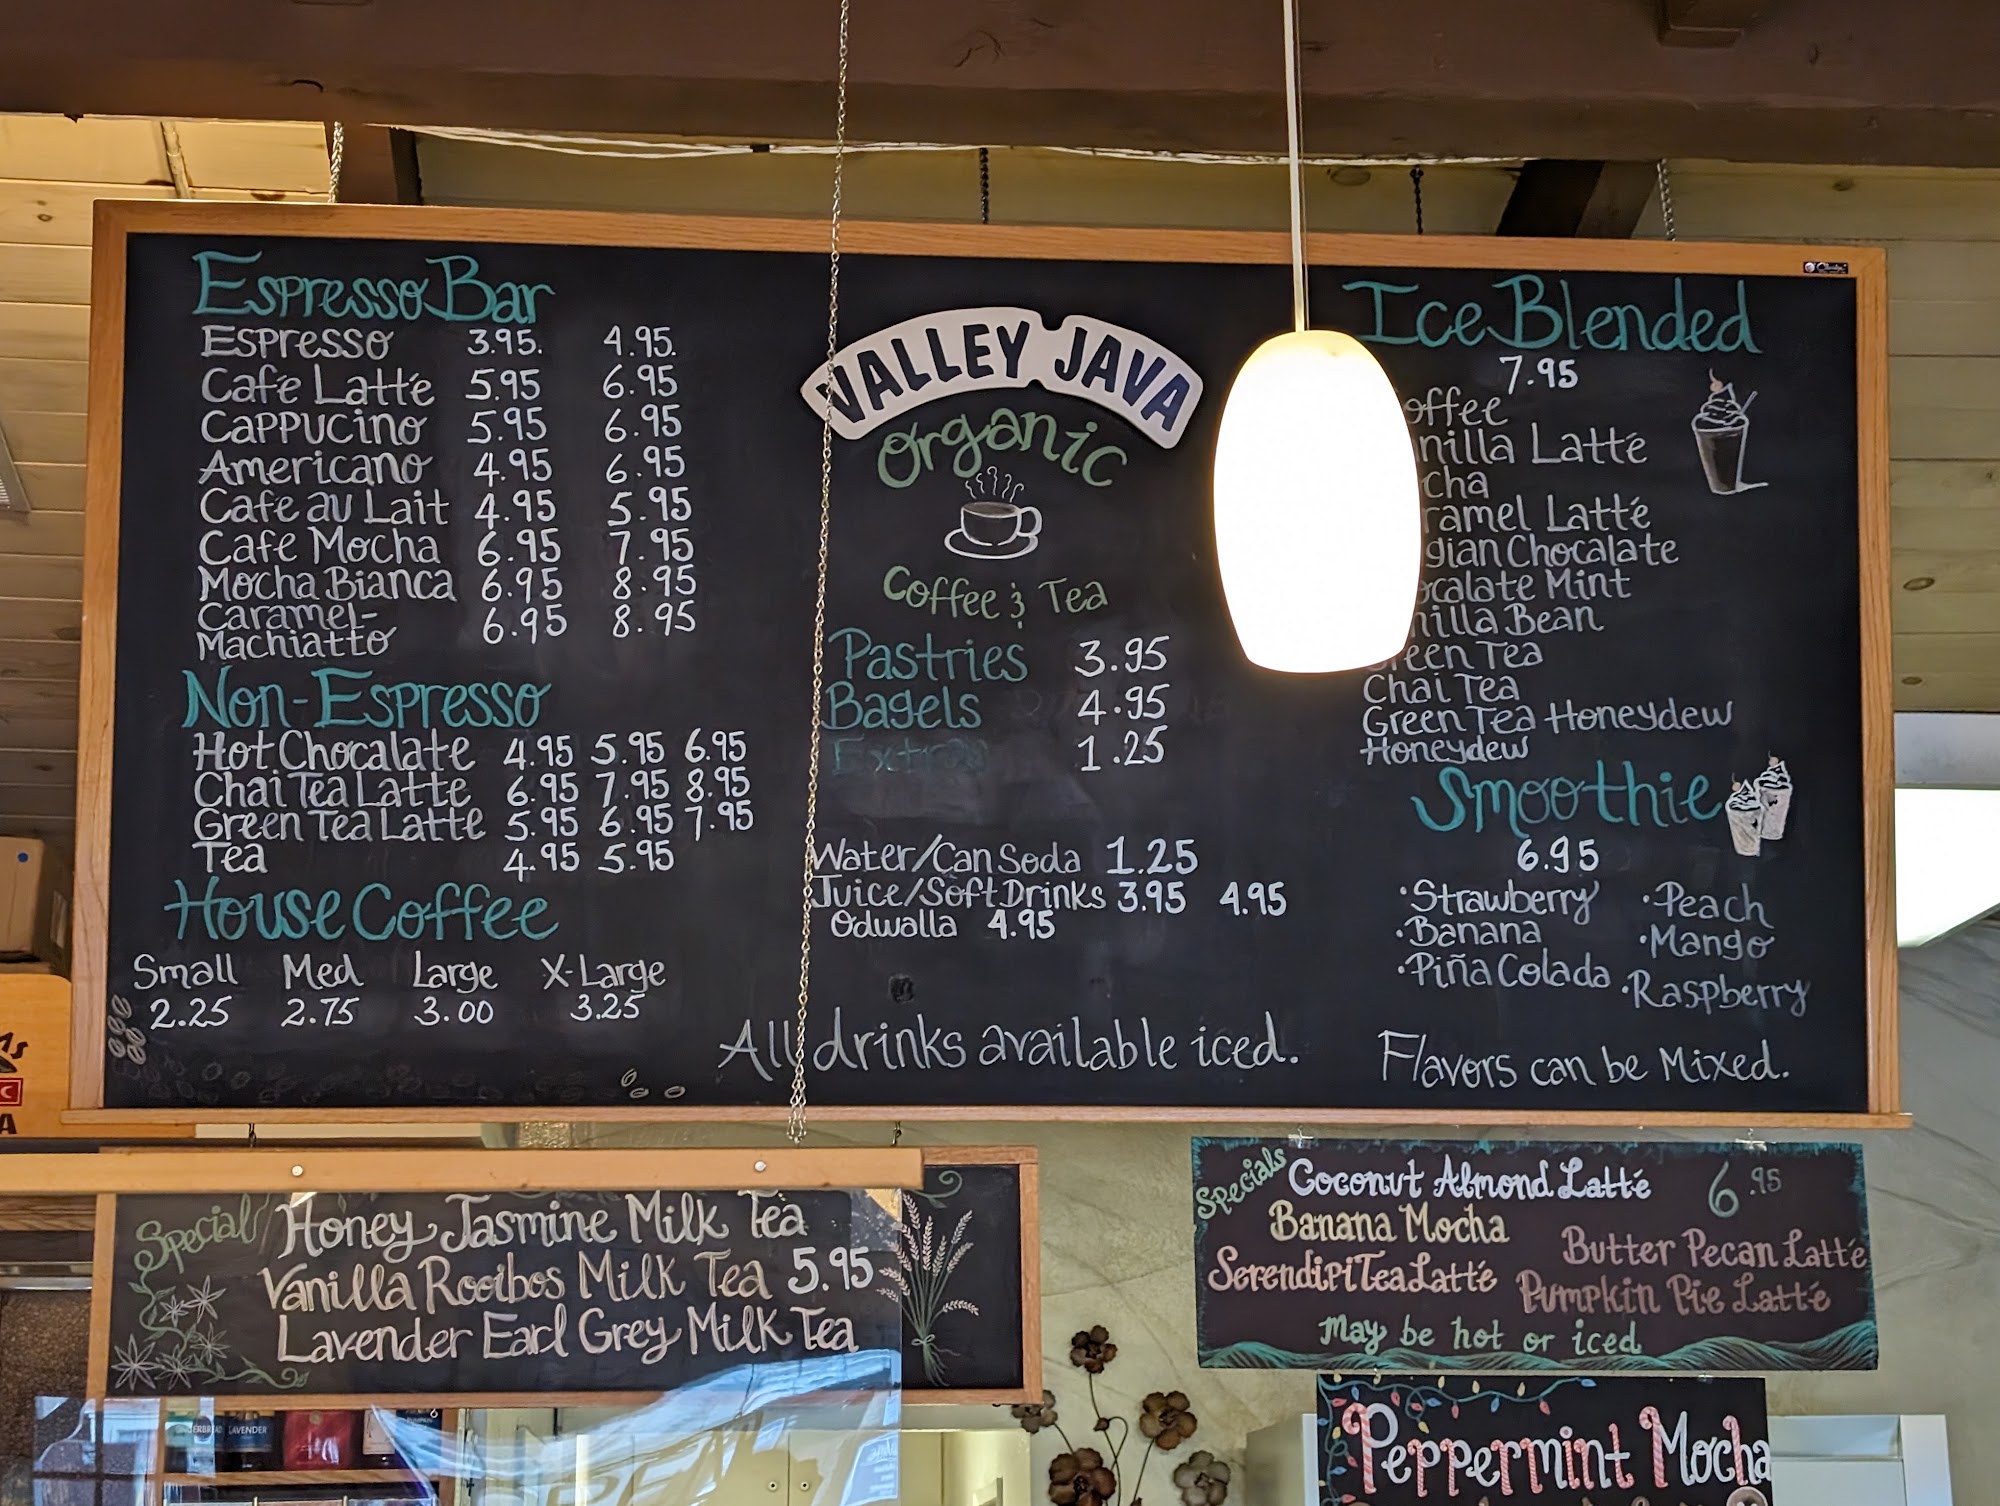 Espresso Bar
Espresso 3.95. 4.95.
Café Latté 5.95 6.95
Cappucino 5.95 6.95
Americano 4.95 6.95
Cafe au Lait 4.95 5.95
Cafe Mocha 6.95 7.95
Mocha Bianca 6.95 8.95
Caramel-
Machiatto 6.95 8.95
Non-Espresso
Hot Chocalate 4.95 5.95 6.95
Chai Tea Latte 6.95 7.95 8.95
Green Tea Latte 5.95 6.95 7.95
Tea 4.95 5.95
House Coffee
Small Med Large X-Large
2.25 2.75 3.00 3.25
VALLEY JAVA
Organic
Coffee & Tea
Pastries 3.95
Bagels 4.95
Extras 1.25
Water/Can Soda 1.25
Juice/Soft Drinks 3.95 4.95
Odwalla 4.95
All drinks available iced.
Ice Blended
7.95
offee
nilla Latté
cha
ramel Latté
gian Chocalate
ocalate Mint
nilla Bean
reen Tea
Chai Tea
Green Tea Honeydew
Honeydew
Smoothie
6.95
·Strawberry ·Peach
·Banana ·Mango
·Piña Colada ·Raspberry
Flavors can be Mixed.
Special
Honey Jasmine Milk Tea
Vanilla Rooibos Milk Tea 5.95
Lavender Earl Grey Milk Tea
Specials
Coconut Almond Latté 6.95
Banana Mocha
Butter Pecan Latté
SerendipiTea Latté
Pumpkin Pie Latté
May be hot or iced
Peppermint Mocha
LAVENDER